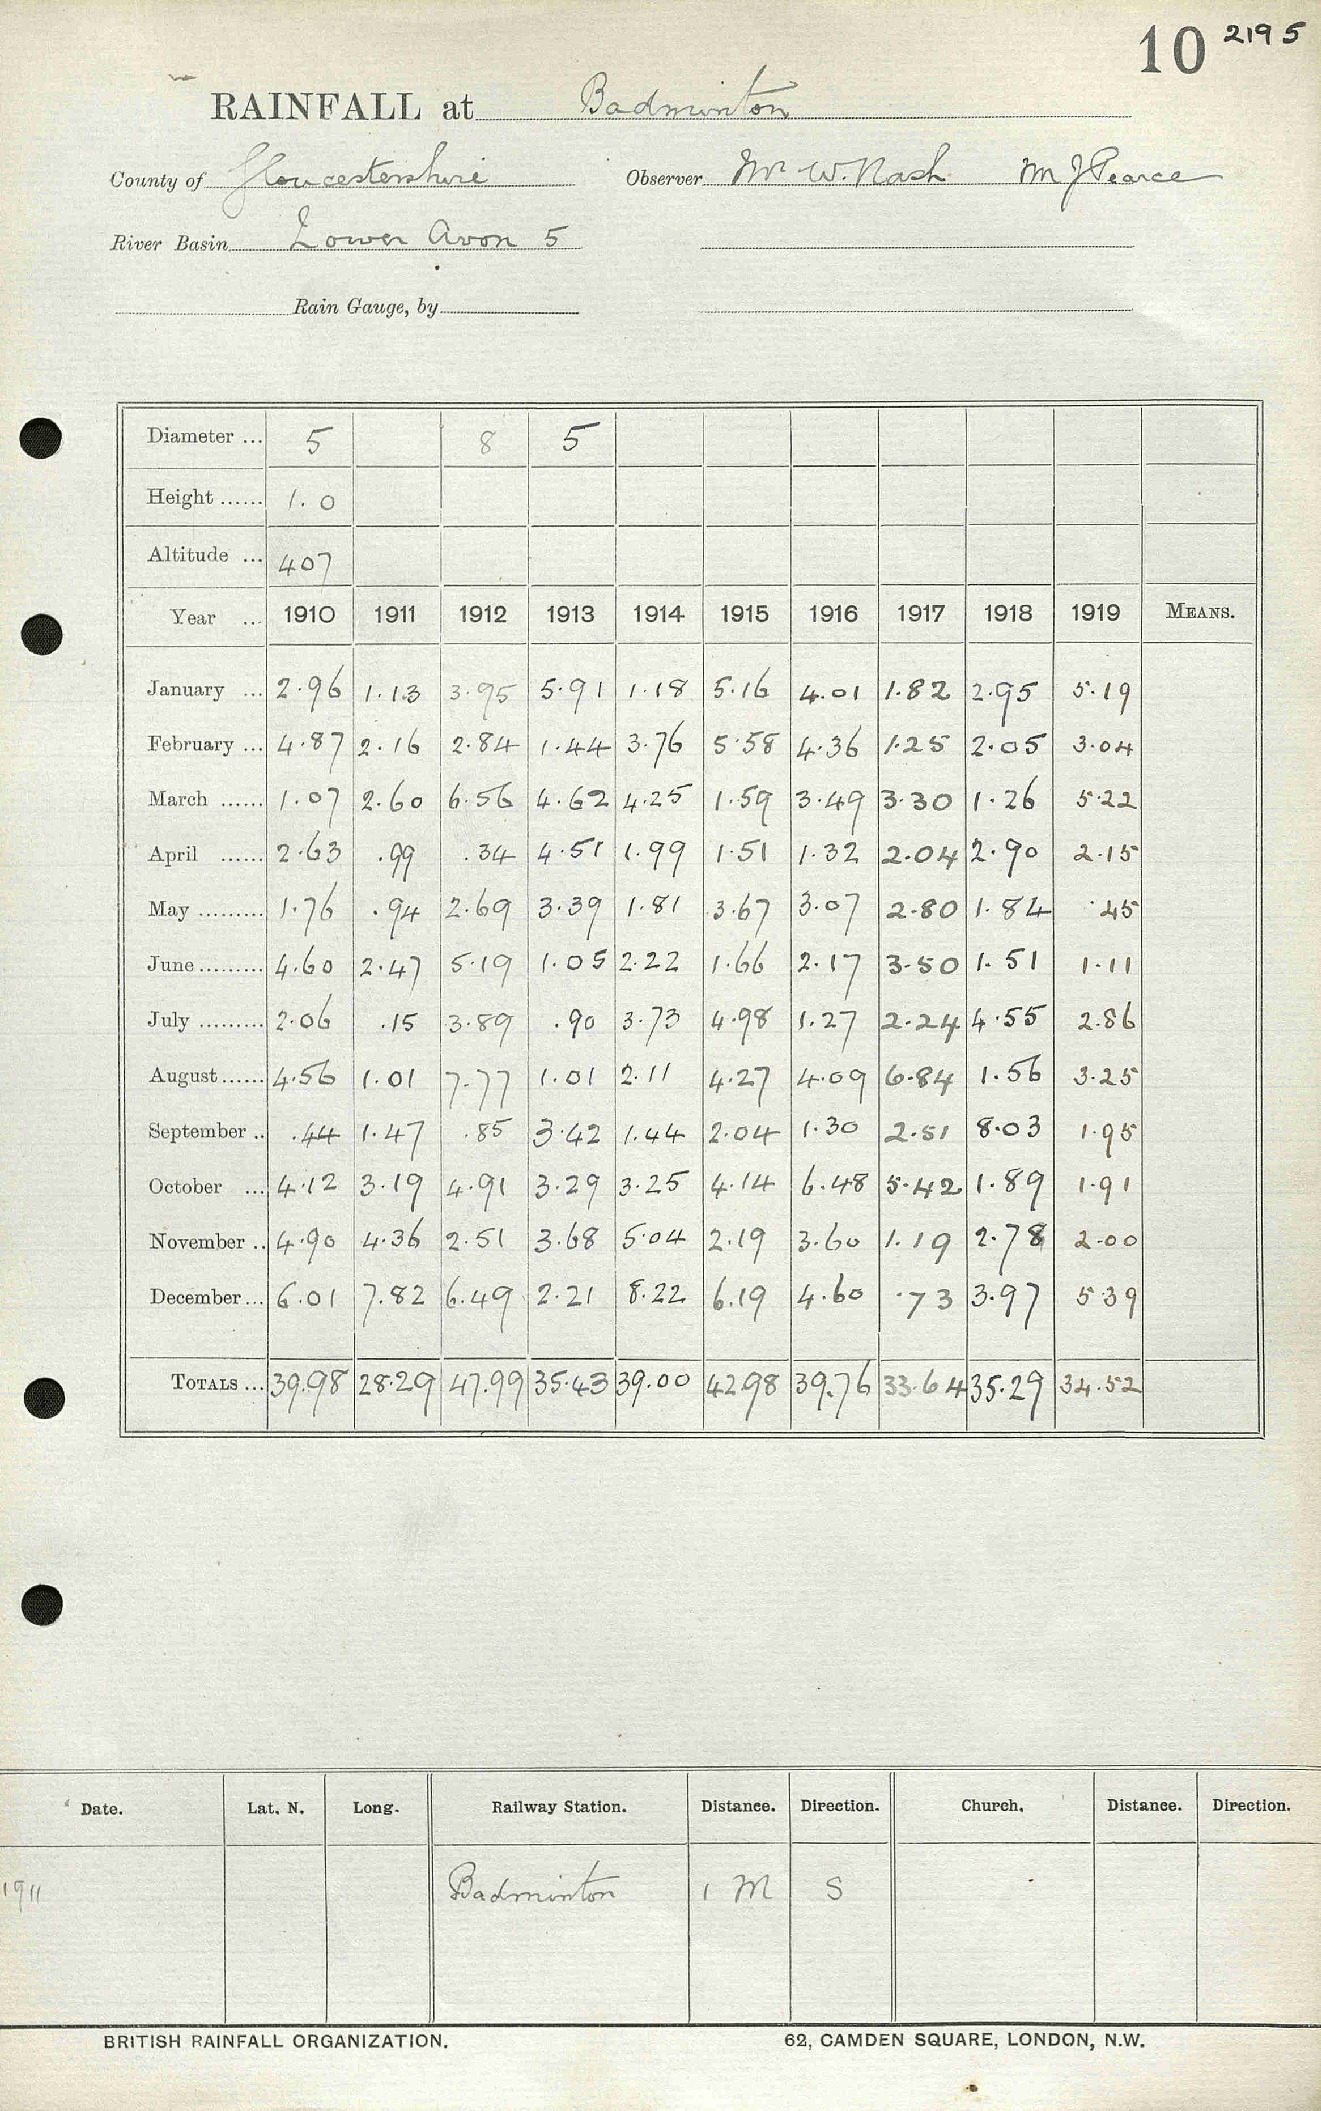 10 2195
RAINFALL at Badminton
County of Gloucestershire Observer Mr W. Nash M J Pearce
River Basin Lower Avon 5
Rain Gauge, by
Diameter ... 5 8 5
Height ...... 1.0
Altitude ... 407
Year ... 1910 1911 1912 1913 1914 1915 1916 1917 1918 1919 MEANS.
January ... 2.96 1.13 3.95 5.91 1.18 5.16 4.01 1.82 2.95 5.19
February ... 4.87 2.16 2.84 1.44 3.76 5.58 4.36 1.25 2.05 3.04
March ...... 1.07 2.60 6.56 4.62 4.25 1.59 3.49 3.30 1.26 5.22
April ...... 2.63 .99 .34 4.51 1.99 1.51 1.32 2.04 2.90 2.15
May ......... 1.76 .94 2.69 3.39 1.81 3.67 3.07 2.80 1.84 .45
June ......... 4.60 2.47 5.19 1.05 2.22 1.66 2.17 3.50 1.51 1.11
July ......... 2.06 .15 3.89 .90 3.73 4.98 1.27 2.24 4.55 2.86
August ...... 4.56 1.01 7.77 1.01 2.11 4.27 4.09 6.84 1.56 3.25
September .. .44 1.47 .85 3.42 1.44 2.04 1.30 2.51 8.03 1.95
October ... 4.12 3.19 4.91 3.29 3.25 4.14 6.48 5.42 1.89 1.91
November .. 4.90 4.36 2.51 3.68 5.04 2.19 3.60 1.19 2.78 2.00
December ... 6.01 7.82 6.49 2.21 8.22 6.19 4.60 .73 3.97 5.39
TOTALS ... 39.98 28.29 47.99 35.43 39.00 42.98 39.76 33.64 35.29 34.52
Date. Lat. N. Long. Railway Station. Distance. Direction. Church. Distance. Direction.
1911 Badminton 1 M S
BRITISH RAINFALL ORGANIZATION. 62, CAMDEN SQUARE, LONDON, N.W.